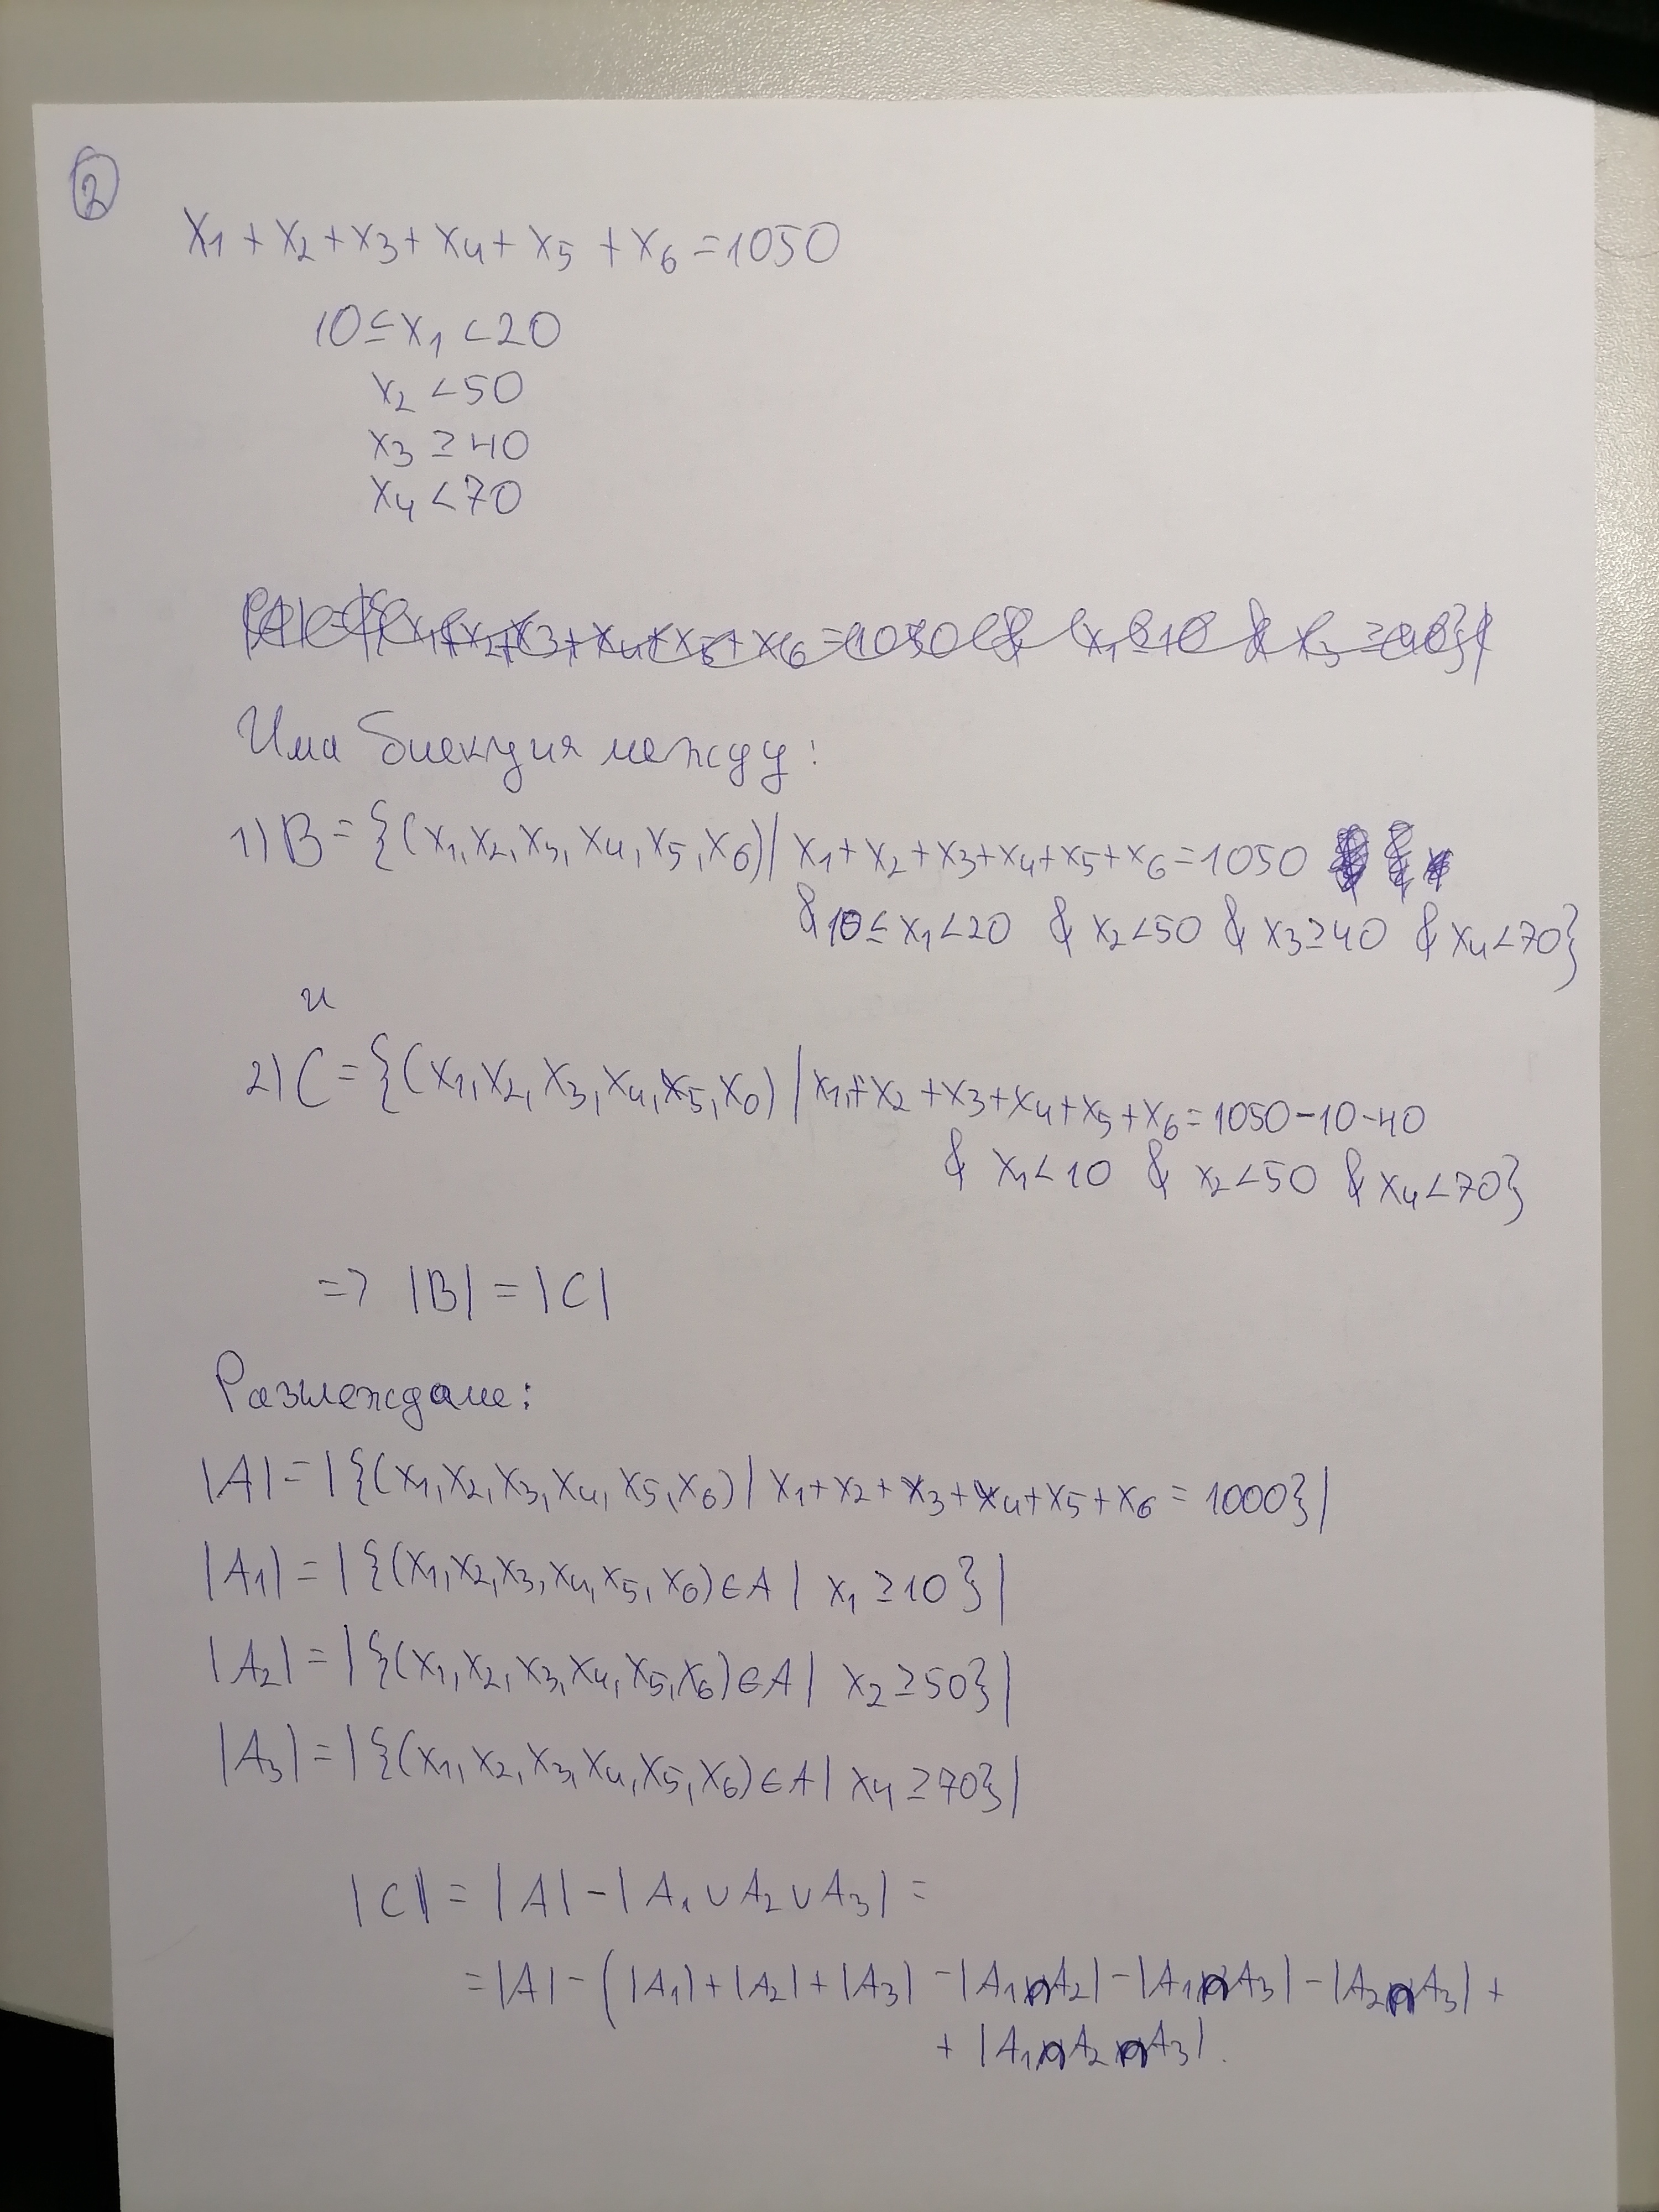 2
x₁ + x₂ + x₃ + x₄ + x₅ + x₆ = 1050
10 ≤ x₁ < 20
x₂ < 50
x₃ ≥ 40
x₄ < 70
|A| = |{ x₁ + x₂ + x₃ + x₄ + x₅ + x₆ = 1050 & x₁ ≥ 10 & x₃ ≥ 40}|
Има биекция между:
1) B = {(x₁, x₂, x₃, x₄, x₅, x₆) | x₁ + x₂ + x₃ + x₄ + x₅ + x₆ = 1050
& 10 ≤ x₁ < 20 & x₂ < 50 & x₃ ≥ 40 & x₄ < 70}
и
2) C = {(x₁, x₂, x₃, x₄, x₅, x₆) | x₁ + x₂ + x₃ + x₄ + x₅ + x₆ = 1050 - 10 - 40
& x₁ < 10 & x₂ < 50 & x₄ < 70}
=> |B| = |C|
Разглеждаме:
|A| = |{(x₁, x₂, x₃, x₄, x₅, x₆) | x₁ + x₂ + x₃ + x₄ + x₅ + x₆ = 1000}|
|A₁| = |{(x₁, x₂, x₃, x₄, x₅, x₆) ∈ A | x₁ ≥ 10}|
|A₂| = |{(x₁, x₂, x₃, x₄, x₅, x₆) ∈ A | x₂ ≥ 50}|
|A₃| = |{(x₁, x₂, x₃, x₄, x₅, x₆) ∈ A | x₄ ≥ 70}|
|C| = |A| - |A₁ ∪ A₂ ∪ A₃| =
= |A| - (|A₁| + |A₂| + |A₃| - |A₁ ∩ A₂| - |A₁ ∩ A₃| - |A₂ ∩ A₃| +
+ |A₁ ∩ A₂ ∩ A₃|.